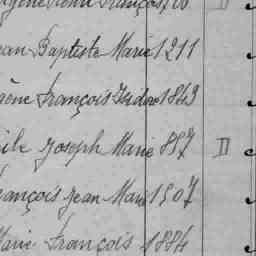 ean Baptiste Marie 1211
ène François Isidore 1843
ile Joseph Marie 887 II
rançois Jean Marie 1507
Marie François 1884